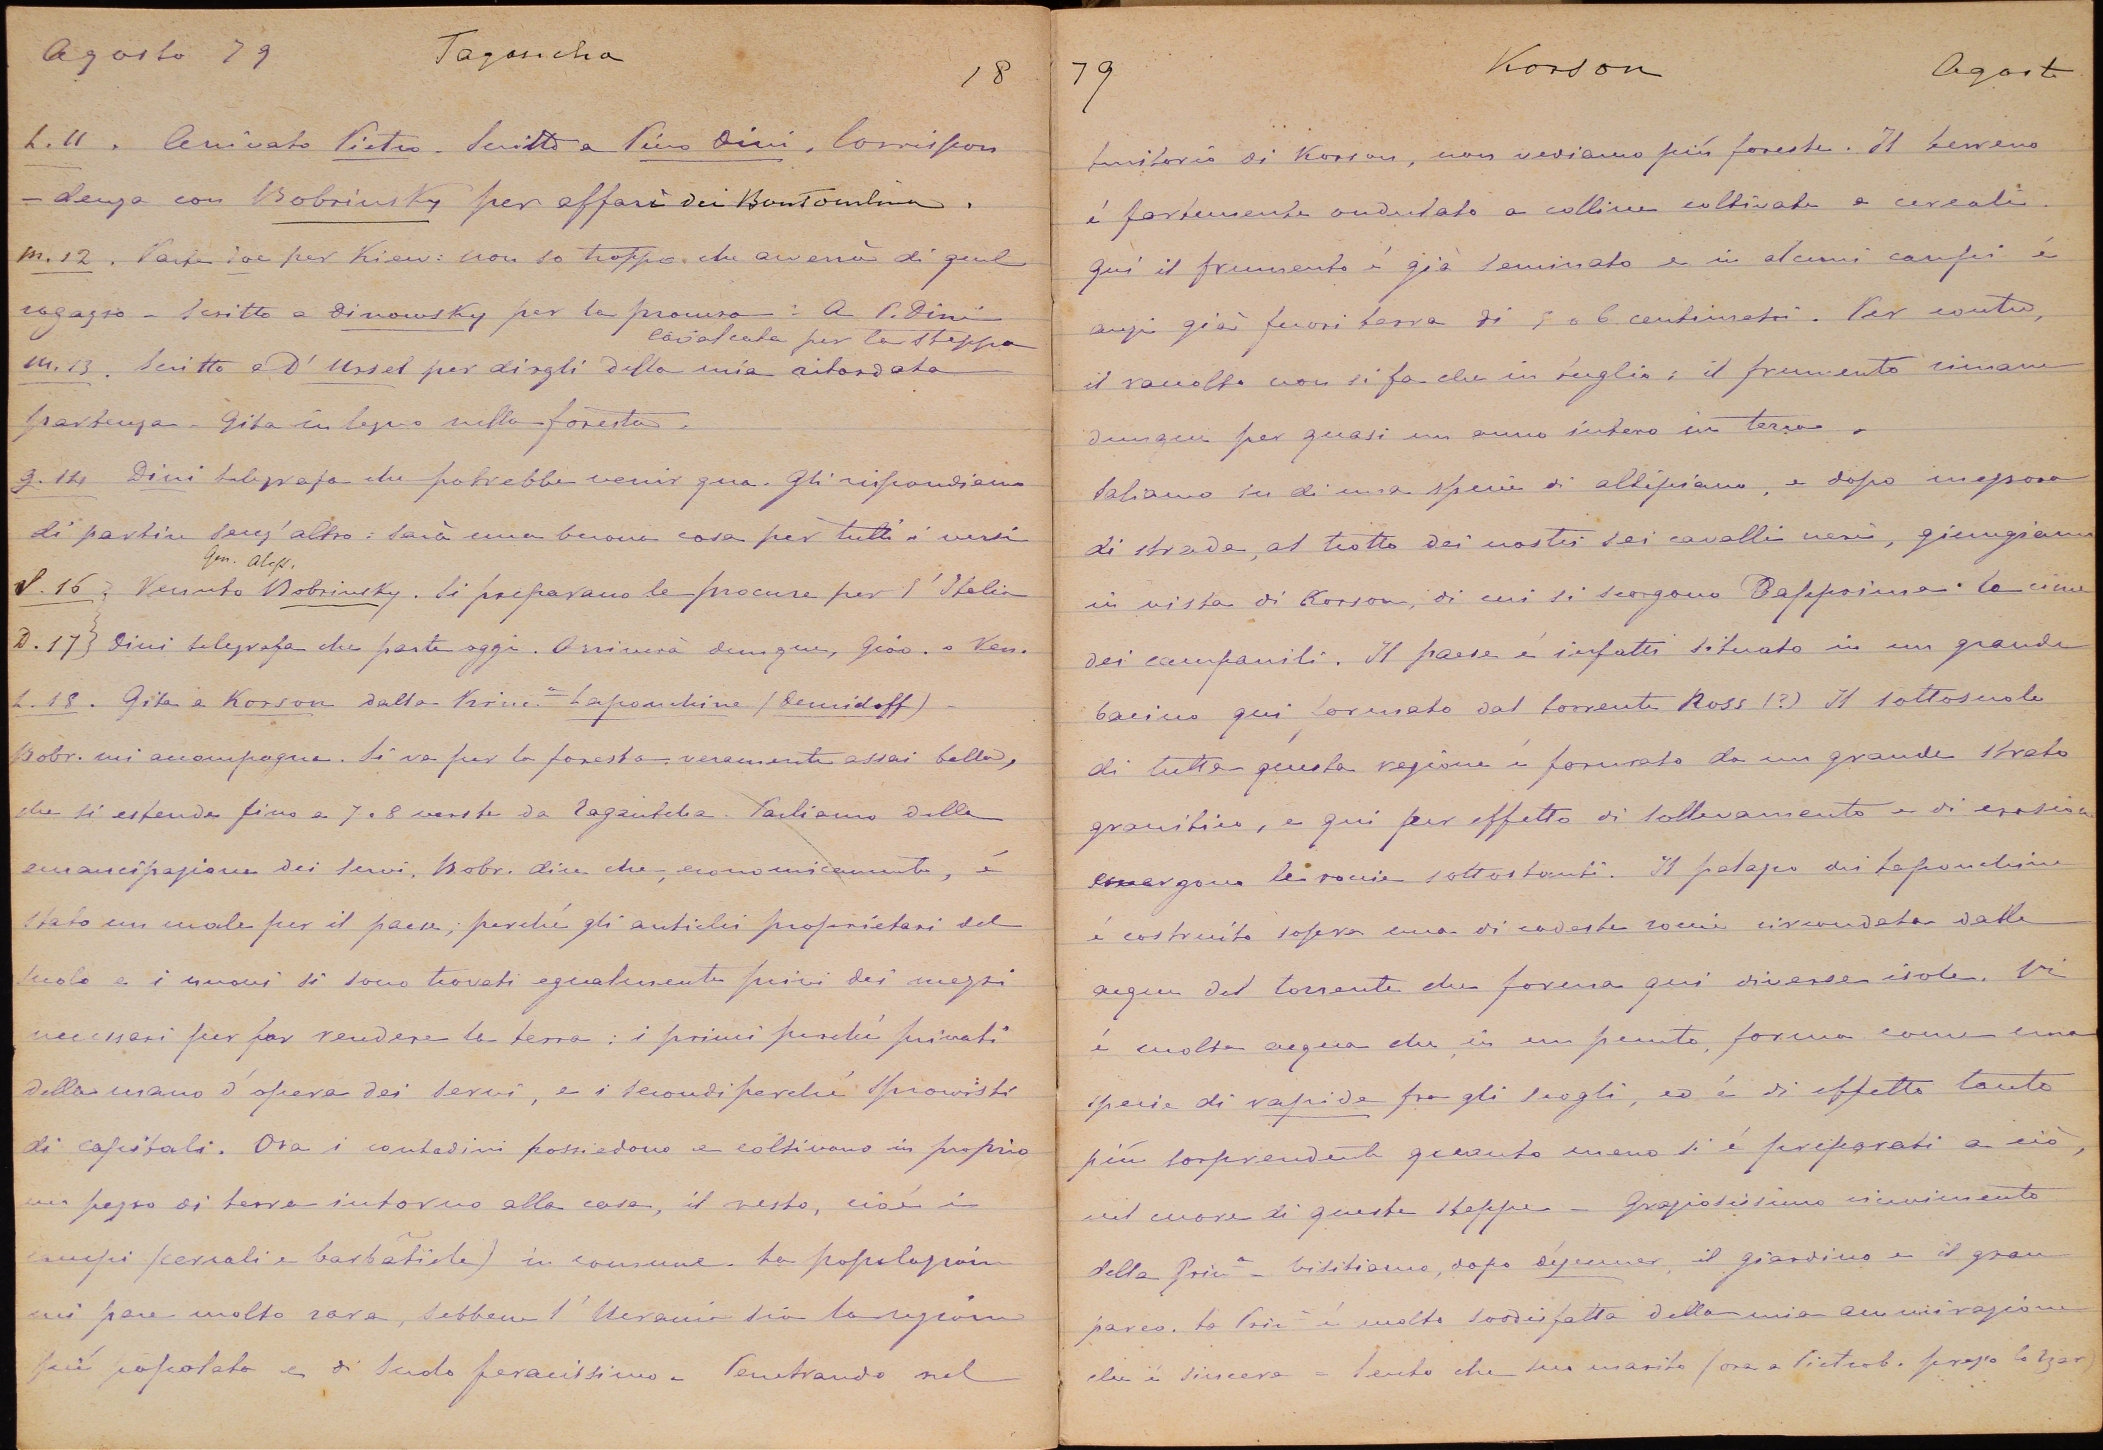 Agosto 79 Tagancha 18
L. 11. Arrivato Pietro. Scritto a Piero Dini. Corrispon
-denza con Bobrinsky per affari dei
m. 12. Parte per Kiew: non so troppo che avverrà di quel
ragazzo - Scritto a Dinowsky per la procura: A P. Dini
Cavalcata per la steppa
m. 13. Scritto a D'Ursel per dirgli della mia ritardata
partenza - Gita in legno nella foresta.
g. 14 Dini telegrafa che potrebbe venir qua. Gli rispondiamo
di partire senz'altro: sarà una buona cosa per tutti i versi
Gen. Aless.
S. 16 } Venuto Bobrinsky. Si preparano le procure per l'Italia
D. 17 } Dini telegrafa che parte oggi. Arriverà dunque, Giov. o Ven.
L. 18. Gita a Korson dalla Princ.a Lapouchine (Demidoff) -
Bobr. mi accompagna. Si va per la foresta veramente assai bella,
che si estende fino a 7 o 8 verste da Tagantcha. Parliamo della
emancipazione dei servi. Bobr. dice che, economicamente, è
stato un male per il paese; perché gli antichi proprietari del
suolo e i nuovi si sono trovati egualmente privi dei mezzi
necessari per far rendere la terra: i primi perché privati
della mano d'opera dei servi, e i secondi perché sprovvisti
di capitali. Ora i contadini possiedono e coltivano in proprio
un pezzo di terra intorno alla casa, il resto, cioè i
campi (cereali e barbabietole) in comune. La popolazione
mi pare molto rara, sebbene l'Ucrania sia la regione
più popolata e di suolo feracissimo - Penetrando nel
79 Korson Agosto
territorio di Korson, non vediamo più foreste. Il terreno
è fortemente ondulato a colline coltivate a cereali.
Qui il frumento è già seminato e in alcuni campi è
anzi già fuori terra di 5 o 6 centimetri. Per contro,
il raccolto non si fa che in luglio: il frumento rimane
dunque per quasi un anno intero in terra.
Saliamo su di una specie di altipiano, e dopo mezzora
di strada, al trotto dei nostri sei cavalli neri, giungiamo
in vista di Korson, di cui si scorgono dapprima le cime
dei campanili. Il paese è infatti situato in un grande
bacino qui formato dal torrente Ross (?) Il sottosuolo
di tutta questa regione è formato da un grande strato
granitico, e qui per effetto di sollevamento e di erosione
emergono le roccie sottostanti. Il palazzo dei Lapouchine
è costruito sopra una di codeste roccie circondata dalle
acque del torrente che forma qui diverse isole. Vi
è molta acqua che in un punto, forma come una
specie di rapide fra gli scogli, ed è di effetto tanto
più sorprendente quanto meno si è preparati a ciò,
nel cuore di queste steppe - Graziosissimo ricevimento
della Prin.a - Visitiamo, dopo déjeuner, il giardino e il gran
parco. La Prin.a è molto soddisfatta della mia ammirazione
che è sincera - Sento che suo marito (ora a Pietrob. presso lo Tzar)